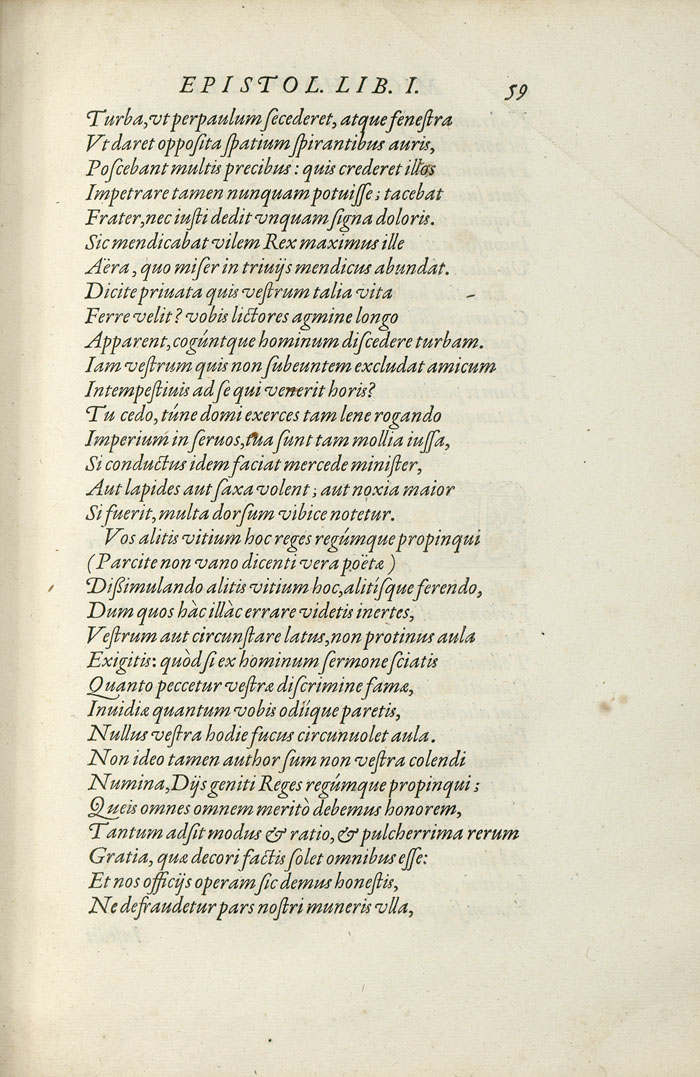 EPISTOL. LIB. I. 59
Turba, vt perpaulum ſecederet, atque feneſtra
Vt daret oppoſita ſpatium ſpirantibus auris,
Poſcebant multis precibus: quis crederet illos
Impetrare tamen nunquam potuiſſe; tacebat
Frater, nec iuſti dedit vnquam ſigna doloris.
Sic mendicabat vilem Rex maximus ille
Aëra, quo miſer in triuijs mendicus abundat.
Dicite priuata quis veſtrum talia vita
Ferre velit? vobis lictores agmine longo
Apparent, cogúntque hominum diſcedere turbam.
Iam veſtrum quis non ſubeuntem excludat amicum
Intempeſtiuis ad ſe qui venerit horis?
Tu cedo, túne domi exerces tam lene rogando
Imperium in ſeruos, tua ſunt tam mollia iuſſa,
Si conductus idem faciat mercede miniſter,
Aut lapides aut ſaxa volent; aut noxia maior
Si fuerit, multa dorſum vibice notetur.
Vos alitis vitium hoc reges regúmque propinqui
(Parcite non vano dicenti vera poëtæ)
Dißimulando alitis vitium hoc, alitíſque ferendo,
Dum quos hàc illàc errare videtis inertes,
Veſtrum aut circunſtare latus, non protinus aula
Exigitis: quòd ſi ex hominum ſermone ſciatis
Quanto peccetur veſtræ diſcrimine famæ,
Inuidiæ quantum vobis odiíque paretis,
Nullus veſtra hodie fucus circunuolet aula.
Non ideo tamen author ſum non veſtra colendi
Numina, Dijs geniti Reges regúmque propinqui;
Queis omnes omnem meritò debemus honorem,
Tantum adſit modus & ratio, & pulcherrima rerum
Gratia, quæ decori factis ſolet omnibus eſſe:
Et nos officijs operam ſic demus honeſtis,
Ne defraudetur pars noſtri muneris vlla,